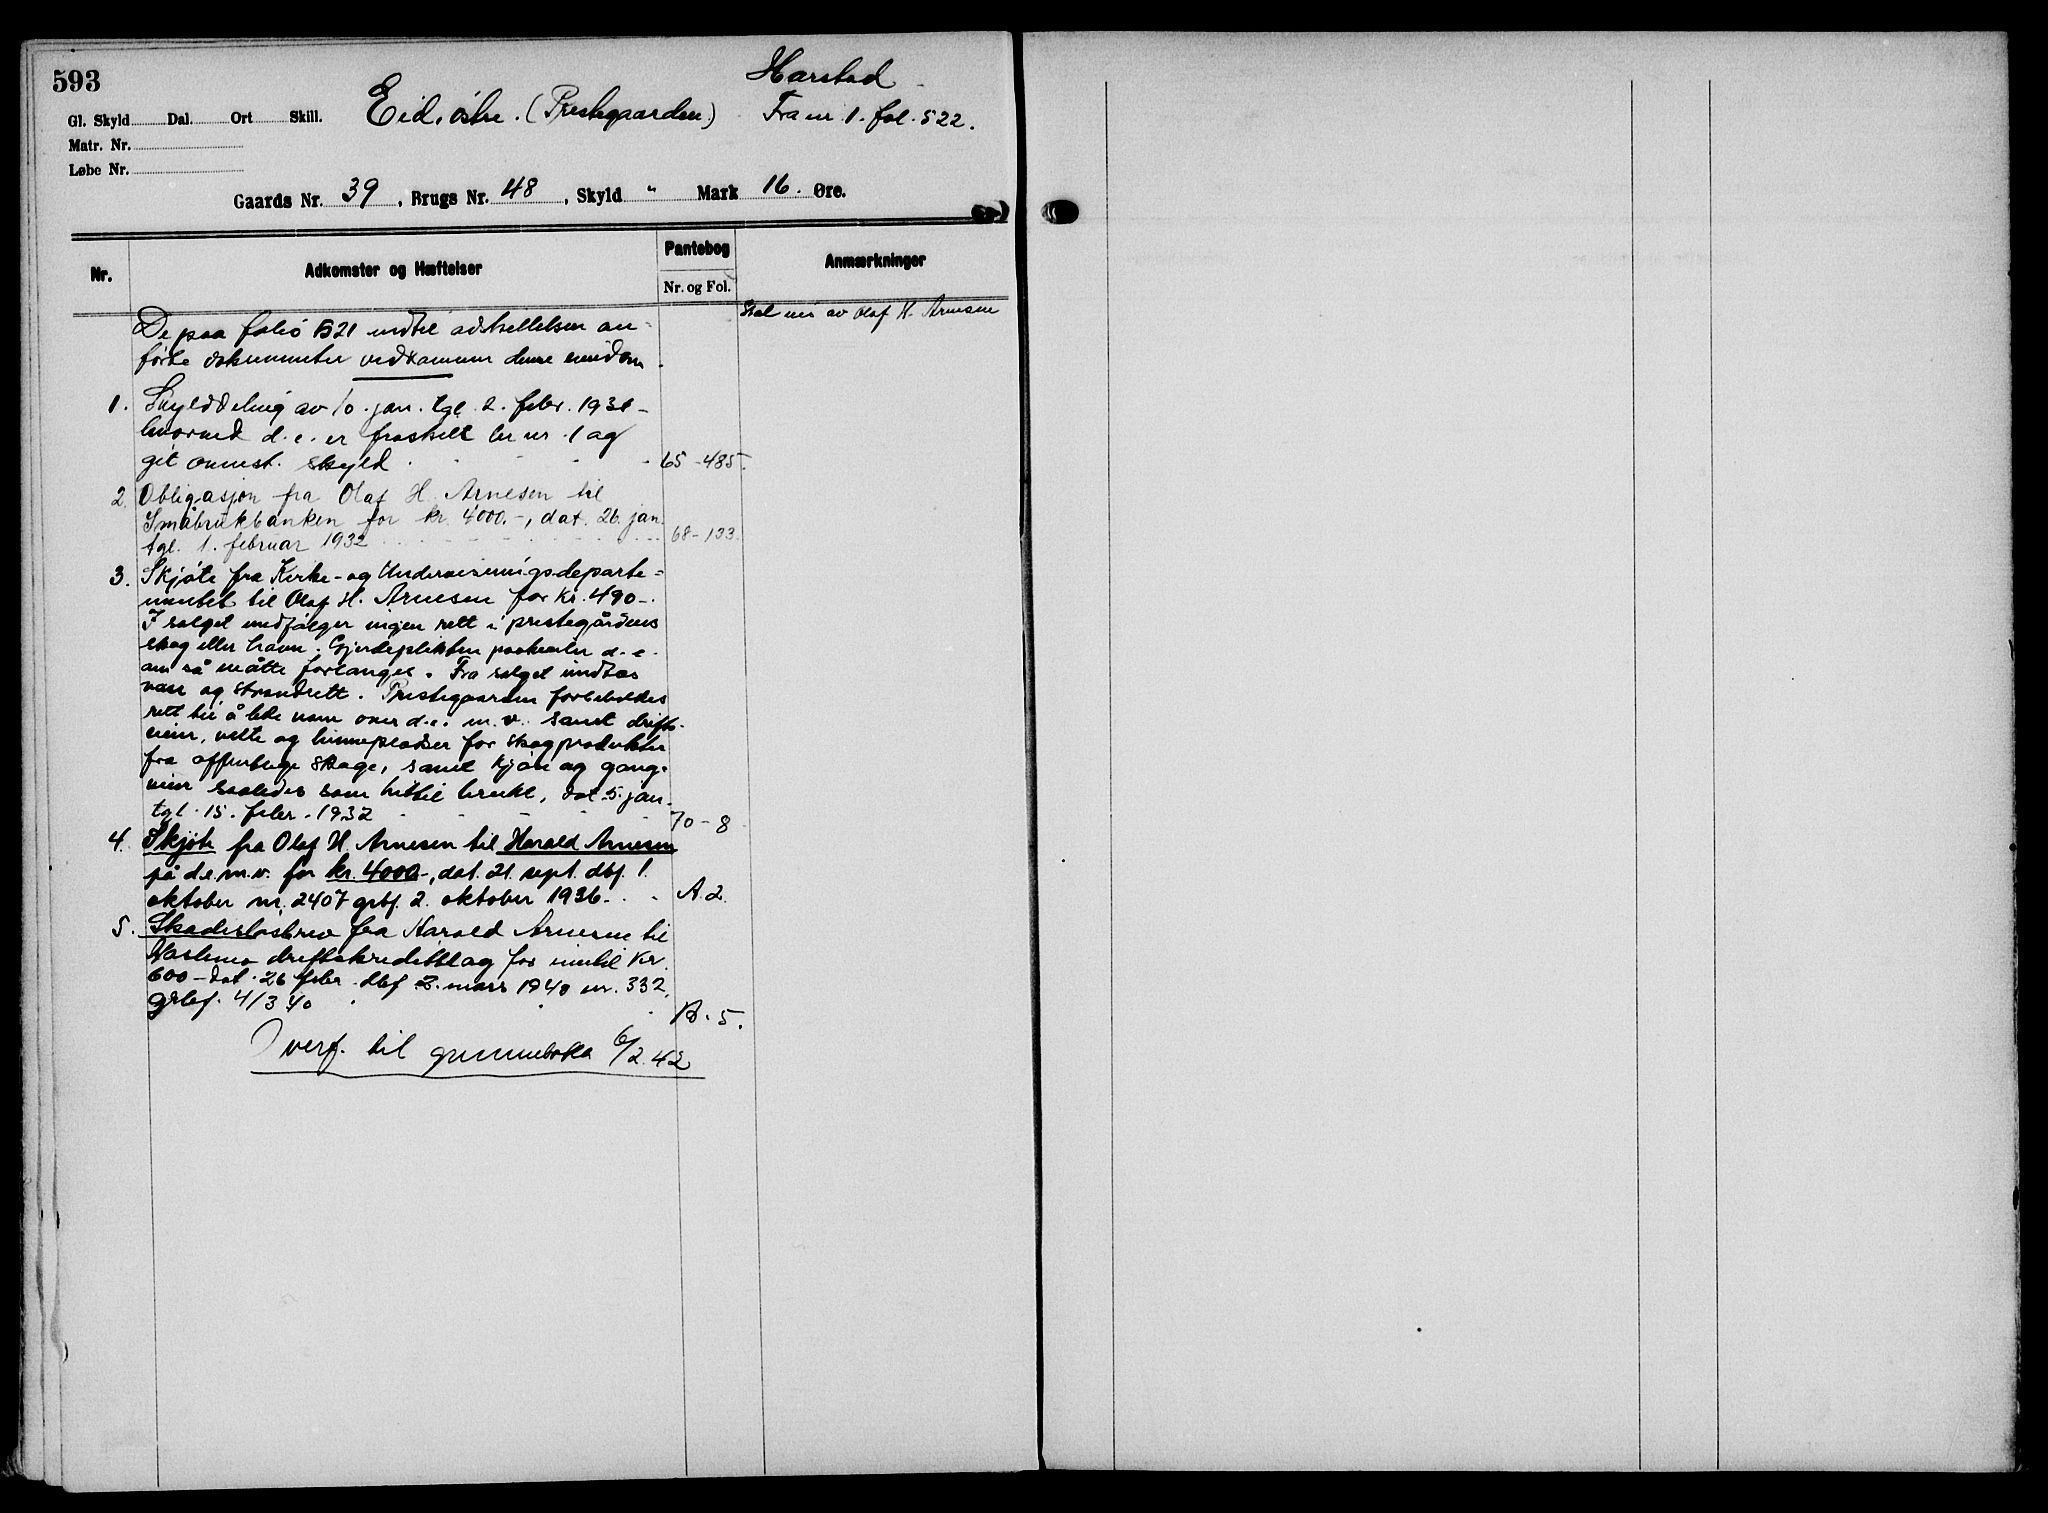 593
Harstad
Gl. Skyld Dal. Ort Skill. Eid, östre. (Prestegaarden) Fra nr 1. fol. 522.
Matr. Nr.
Løbe Nr.
Gaards Nr. 39, Brugs Nr. 48, Skyld " Mark 16. Øre.
Nr. Adkomster og Hæftelser Pantebog Nr. og Fol. Anmærkninger
Skal eies av Olaf H. Arnesen
De paa folio 521 indtil adskillelsen an-
förte dokumenter vedkommer denne eiendom.
1. Skylddeling av 10. jan. tgl. 2. febr. 1931 -
hvorved d. e. er fraskilt br nr. 1 og
git ovenst. skyld. 65 - 485.
2. Obligasjon fra Olaf H. Arnesen til
Småbrukbanken for kr. 4000.-, dat. 26. jan.
tgl. 1. februar 1932 68 - 133.
3. Skjöte fra Kirke- og Undervisningsdeparte-
mentet til Olaf H. Arnesen for kr. 490 -.
I salget medfölger ingen rett i prestegårdens
skog eller havn. Gjerdeplikten paahviler d. e.
om så måtte forlanges. Fra salget undtas
vass og strandrett. Prestegaarden forbeholdes
rett til å lede vann over d. e. m. v. samt drifts-
veier, velte og binneplasser for skogprodukter
fra offentlige skoge, samt kjöre og gang-
veier saaledes som hittil brukt, dat. 5. jan.
tgl. 15. febr. 1932 70 - 8
4. Skjöte fra Olaf H. Arnesen til Harald Arnesen
på d.e. m.v. for kr. 4000-, dat. 21. sept. dbf. 1.
oktober nr. 2407 grbf. 2. oktober 1936. A. 2.
5. Skadeslösbrev fra Harald Arnesen til
driftskredittlag for inntil kr.
600 - dat. 26 febr. dbf 2. mars 1940 nr. 332,
grbf. 4/3 40 B. 5.
Overf. til grunnboka 6/2. 42